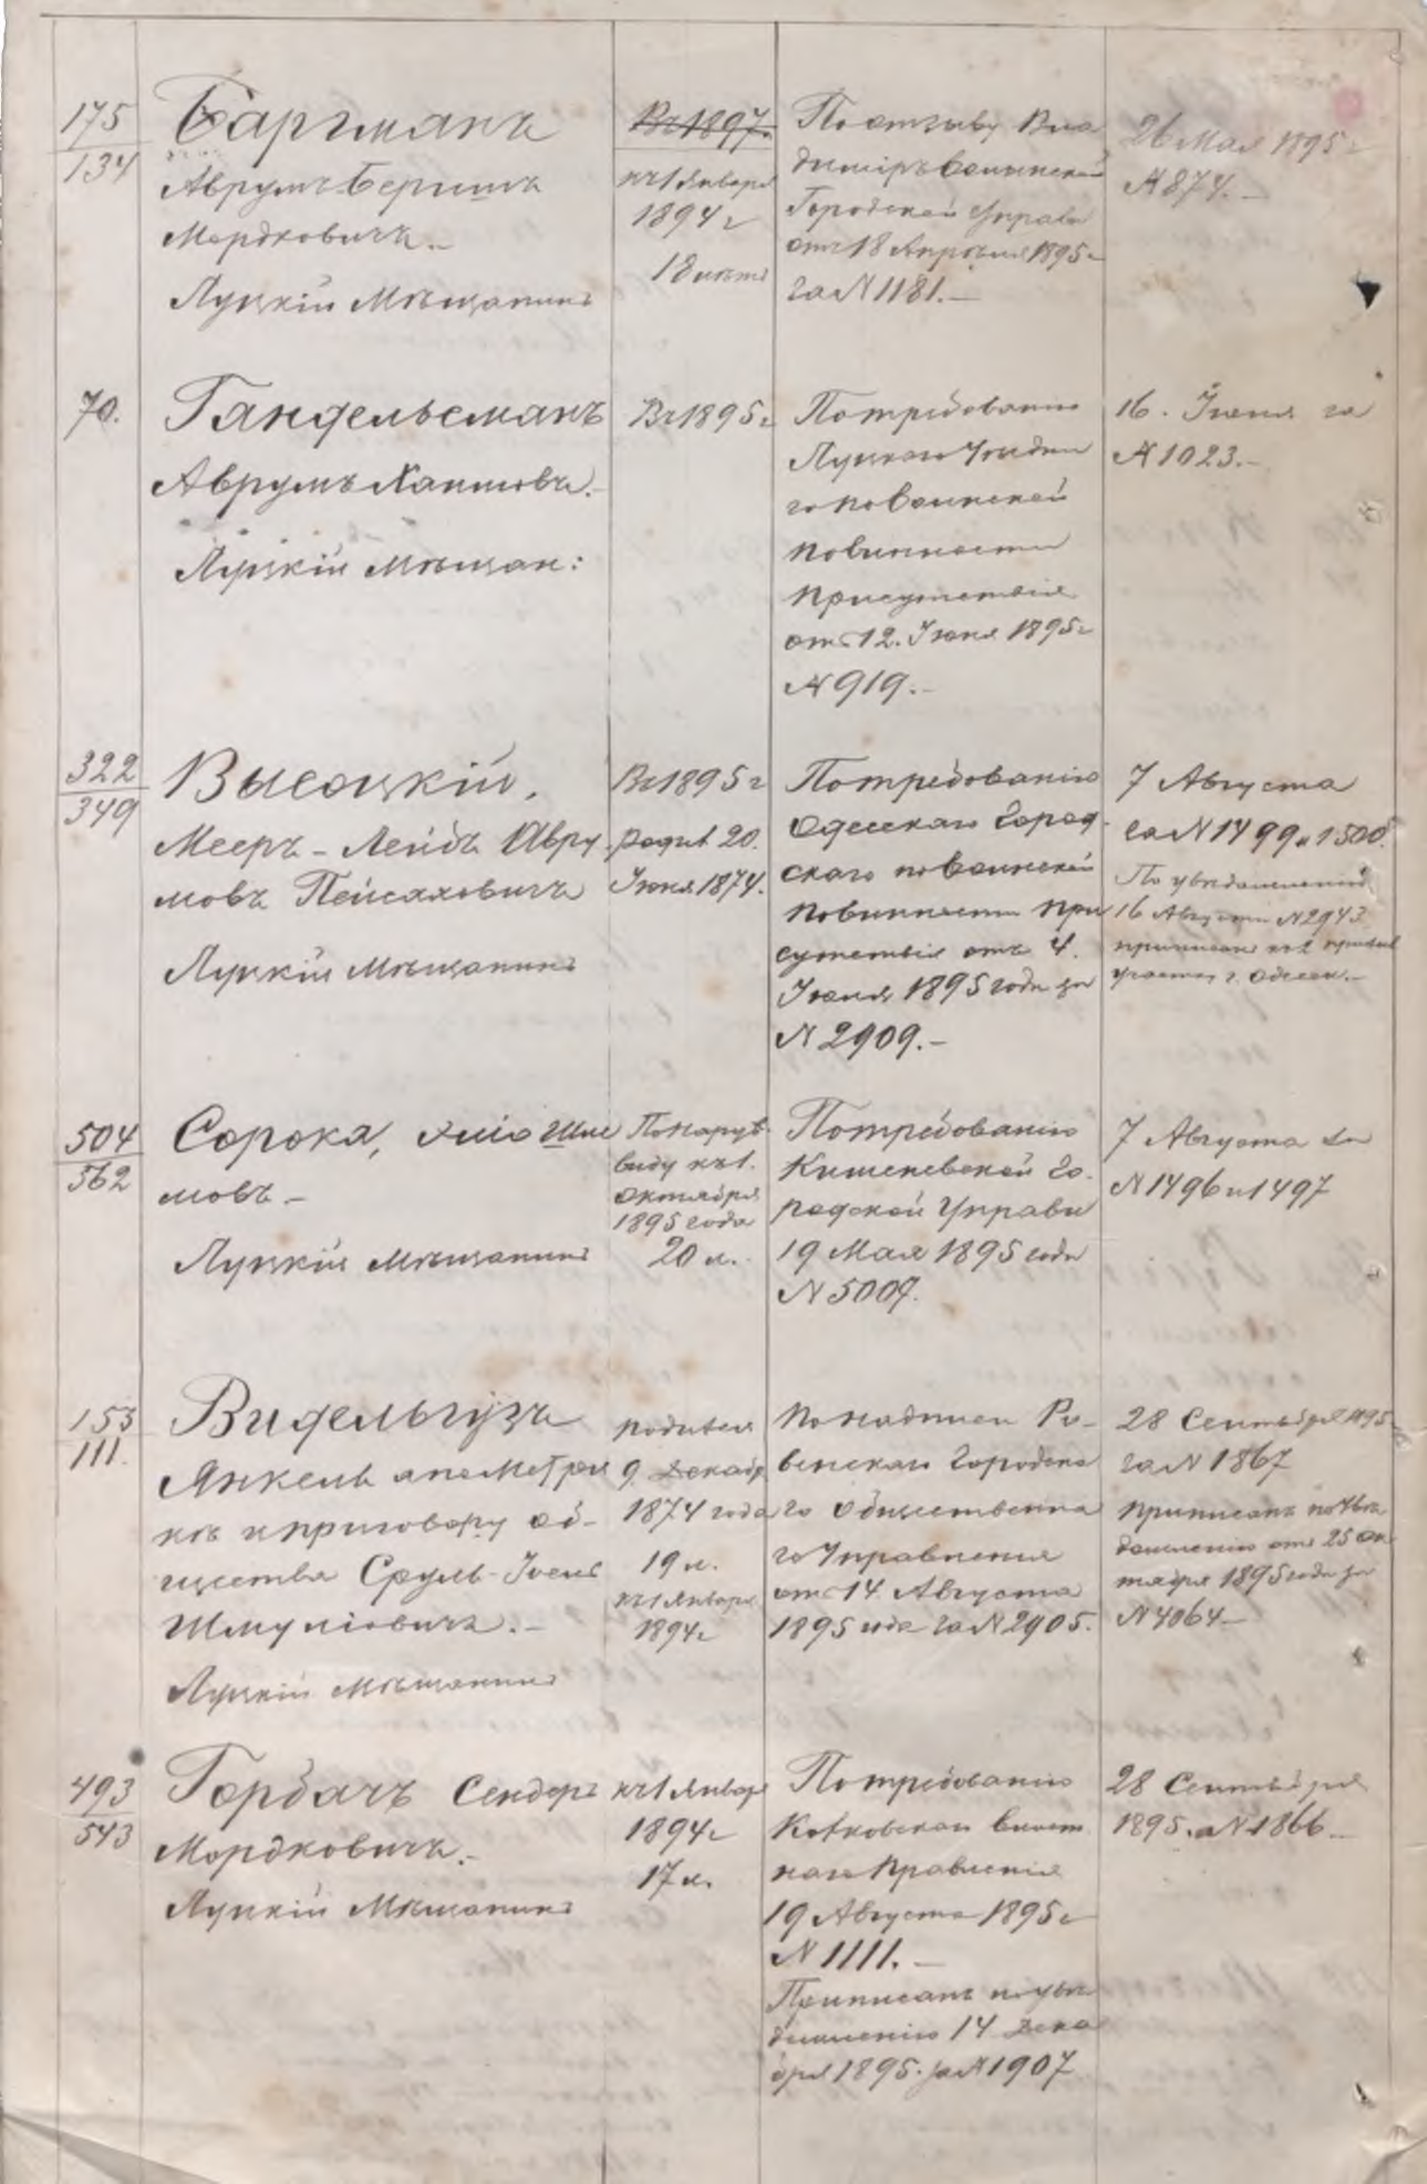 175
134
Баргманъ
Аврумъ-Беришъ
Мордковичъ.-
Луцкій Мѣщанинъ
Въ 1897г.
къ 1 Января
1894 г
18 лѣтъ
По отзыву Вла
диміръ Волынской
Городской Управы
отъ 18 Апрѣля 1895 г
за N 1181.-
26 Мая 1895 г
N 874.-
70.
Гандельсманъ
Аврумъ Хаимовъ.-
Луцкій Мѣщан:
Въ 1895 г
По требованію
Луцкаго Уѣздна
го по воинской
повинности
Присутствія
отъ 12. Іюня 1895 г
N 919.-
16. Іюня за
N 1023.-
322
349
Высоцкій.
Мееръ-Лейбъ Авру
мовъ Пейсаховичъ
Луцкій Мѣщанинъ
Въ 1895 г
родив 20.
Іюня 1874.
По требованію
Одесскаго Город-
скаго по воинской
повинности При
сутствія отъ 4.
Іюня 1895 года за
N 2909.-
7 Августа
за N 1499 и 1500.
По увѣдомленію
16 Августа N 2943
приписанъ къ 2 призыв
участку г. Одессы.-
504
562
Сорока, Хиль Шле
мовъ-
Луцкій Мѣщанинъ
По наруж
виду къ 1.
Октября
1895 года
20 л.
По требованію
Кишеневской Го-
родской Управы
19 Мая 1895 года
N 5007.
7 Августа за
N 1496 и 1497
153
111.
Видельгузъ
Янкель а по Метри
кѣ и приговору об-
щества Сруль-Іосъ
Шмуліовичъ.-
Луцкій Мѣщанинъ
родився
9. Декабр
1874 года
19 л.
къ 1 Января
1894 г
По надписи Ро-
венскаго Городска
го Общественна
го Управленія
отъ 14 Августа
1895 года за N 2905.
28 Сентября 1895
за N 1867
Приписанъ по увѣ
домленію отъ 25 Ок
тября 1895 года за
N 4064-
493
543
Горбачъ Сендеръ
Мордковичъ.-
Луцкій Мѣщанинъ
къ 1 Январ
1894 г
17 л.
По требованію
волост
наго Правленія
19 Августа 1895 г
N 1111.-
Приписанъ по увѣ
домленію 14 Дека
бря 1895. за N 1907
28 Сентября
1895. за N 1866-